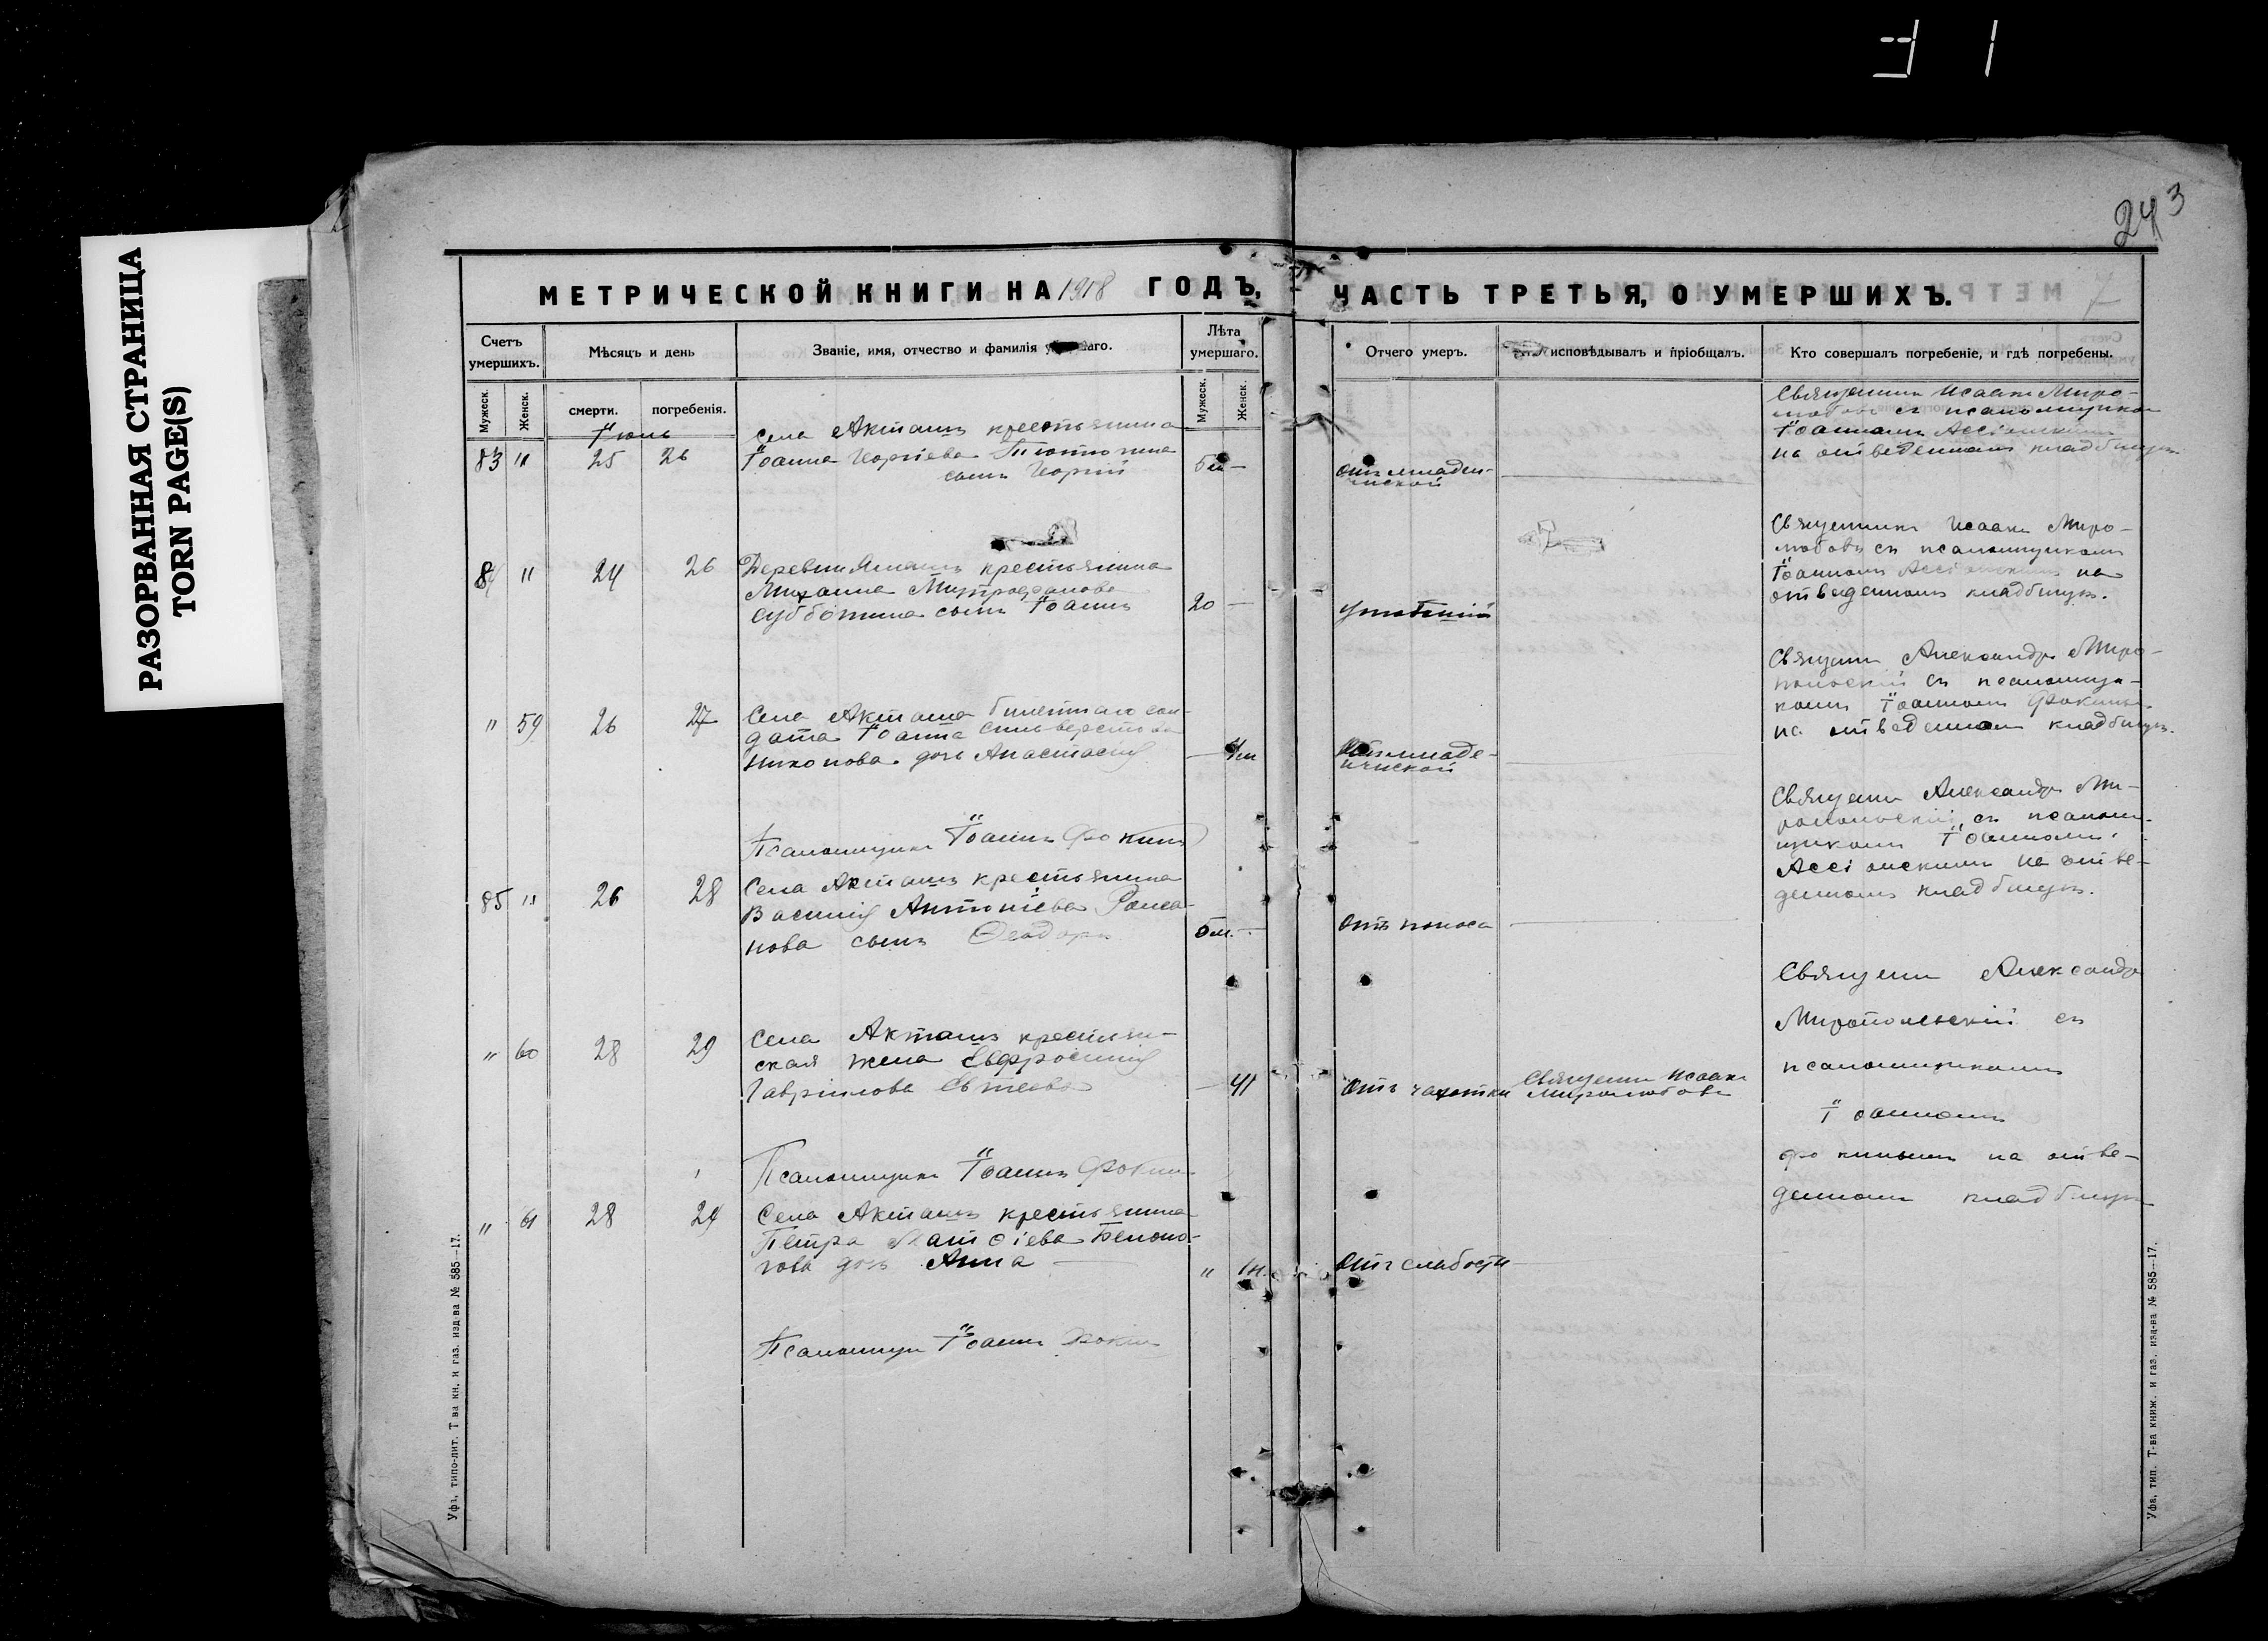 РАЗОРВАННАЯ СТРАНИЦА
TORN PAGE(S)
243
7
МЕТРИЧЕСКОЙ КНИГИ НА 1918 ГОДЪ,
ЧАСТЬ ТРЕТЬЯ, О УМЕРШИХЪ.
Счетъ умершихъ.
Мужеск.
Женск.
Мѣсяцъ и день
смерти.
погребенія.
Званіе, имя, отчество и фамилія
Лѣта умершаго.
Мужеск.
Женск.
Отчего умеръ.
исповѣдывалъ и пріобщалъ.
Кто совершалъ погребеніе, и гдѣ погребены.
Іюнь
83 " 25 26
Села Акташъ крестьянина
Іоанна Георгіева
сынъ Георгій
отъ младен-
ческой
Священникъ Исаакъ Миро-
любовъ съ псаломщикомъ
Іоанномъ
на отведенномъ кладбищѣ
84 " 24 26
Деревни крестьянина
Михаила Митрофанова
Субботина сынъ Іоаннъ
20 —
Священникъ Исаакъ Миро-
любовъ съ псаломщикомъ
Іоанномъ на
отведенномъ кладбищѣ.
" 59 26 27
Села Акташа билетнаго сол-
дата Іоанна Сильверстова
Никонова дочь Анастасія
отъ младе-
нческой
Священ Александръ Миро-
польскій съ псаломщи-
комъ Іоанномъ Фокинымъ
на отведенномъ кладбищѣ.
Псаломщикъ Іоаннъ Фокинъ
85 " 26 28
Села Акташъ крестьянина
Василія Антоніева Рома-
нова сынъ Ѳеодоръ
отъ поноса
Священ Александръ Ми-
ропольскій съ псалом-
щикомъ Іоанномъ
на отве-
денномъ кладбищѣ.
" 60 28 29
Села Акташъ крестьян-
ская жена Евфросинія
Гаврилова
— 41
отъ чахотки
Священ Исаакъ
Миролюбовъ
Священ Александръ
Миропольскій съ
псаломщикомъ
Іоанномъ
Фокинымъ на отве-
денномъ кладбищѣ
Псаломщикъ Іоаннъ Фокинъ
" 61 28 29
Села Акташъ крестьянина
Петра Матѳіева Белоно-
гова дочь Анна
" 1н.
отъ слабости
Псаломщи Іоаннъ Фокин
Уфа, типо-лит. Т ва кн. и газ. изд-ва № 585—17.
Уфа, тип. Т-ва книж. и газ. изд-ва № 585—17.